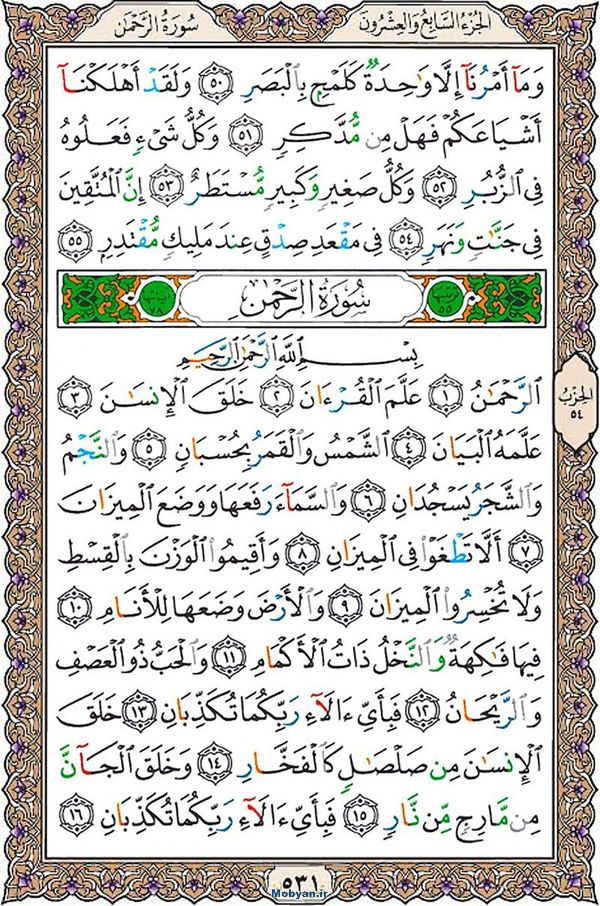 الجُزءُ السَّابِعُ وَالعِشرُونَ
سُورَةُ الرَّحۡمٰن
وَمَآ أَمۡرُنَآ إِلَّا وَٰحِدَةٞ كَلَمۡحِۭ بِٱلۡبَصَرِ ٥٠ وَلَقَدۡ أَهۡلَكۡنَآ
أَشۡيَاعَكُمۡ فَهَلۡ مِن مُّدَّكِرٖ ٥١ وَكُلُّ شَيۡءٖ فَعَلُوهُ
فِي ٱلزُّبُرِ ٥٢ وَكُلُّ صَغِيرٖ وَكَبِيرٖ مُّسۡتَطَرٌ ٥٣ إِنَّ ٱلۡمُتَّقِينَ
فِي جَنَّٰتٖ وَنَهَرٖ ٥٤ فِي مَقۡعَدِ صِدۡقٍ عِندَ مَلِيكٖ مُّقۡتَدِرِۭ ٥٥
سُورَةُ الرَّحۡمٰن
بِسۡمِ ٱللَّهِ ٱلرَّحۡمَٰنِ ٱلرَّحِيمِ
ٱلرَّحۡمَٰنُ ١ عَلَّمَ ٱلۡقُرۡءَانَ ٢ خَلَقَ ٱلۡإِنسَٰنَ ٣
عَلَّمَهُ ٱلۡبَيَانَ ٤ ٱلشَّمۡسُ وَٱلۡقَمَرُ بِحُسۡبَانٖ ٥ وَٱلنَّجۡمُ
وَٱلشَّجَرُ يَسۡجُدَانِ ٦ وَٱلسَّمَآءَ رَفَعَهَا وَوَضَعَ ٱلۡمِيزَانَ
٧ أَلَّا تَطۡغَوۡاْ فِي ٱلۡمِيزَانِ ٨ وَأَقِيمُواْ ٱلۡوَزۡنَ بِٱلۡقِسۡطِ
وَلَا تُخۡسِرُواْ ٱلۡمِيزَانَ ٩ وَٱلۡأَرۡضَ وَضَعَهَا لِلۡأَنَامِ ١٠
فِيهَا فَٰكِهَةٞ وَٱلنَّخۡلُ ذَاتُ ٱلۡأَكۡمَامِ ١١ وَٱلۡحَبُّ ذُو ٱلۡعَصۡفِ
وَٱلرَّيۡحَانُ ١٢ فَبِأَيِّ ءَالَآءِ رَبِّكُمَا تُكَذِّبَانِ ١٣ خَلَقَ
ٱلۡإِنسَٰنَ مِن صَلۡصَٰلٖ كَٱلۡفَخَّارِ ١٤ وَخَلَقَ ٱلۡجَآنَّ
مِن مَّارِجٖ مِّن نَّارٖ ١٥ فَبِأَيِّ ءَالَآءِ رَبِّكُمَا تُكَذِّبَانِ ١٦
الحِزب
٥٤
٥٣١
Mobyan.ir